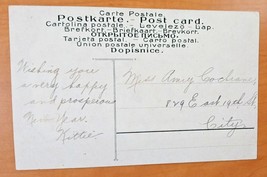 Carte Postale.
Postkarte. - Post card.
Cartolina postale - Levelező Lap.
Brefkort.-Briefkaart-Brevkort.
ОТКРЫТОЕ ПИСЬМО.
Tarjeta postal. - Carto postal.
Union postale universelle.
Dopisnice.
Wishing you
a very happy
and prosperous
New Year.
Kittie
Miss Amy Cochrane,
829 East 19th St,
City.